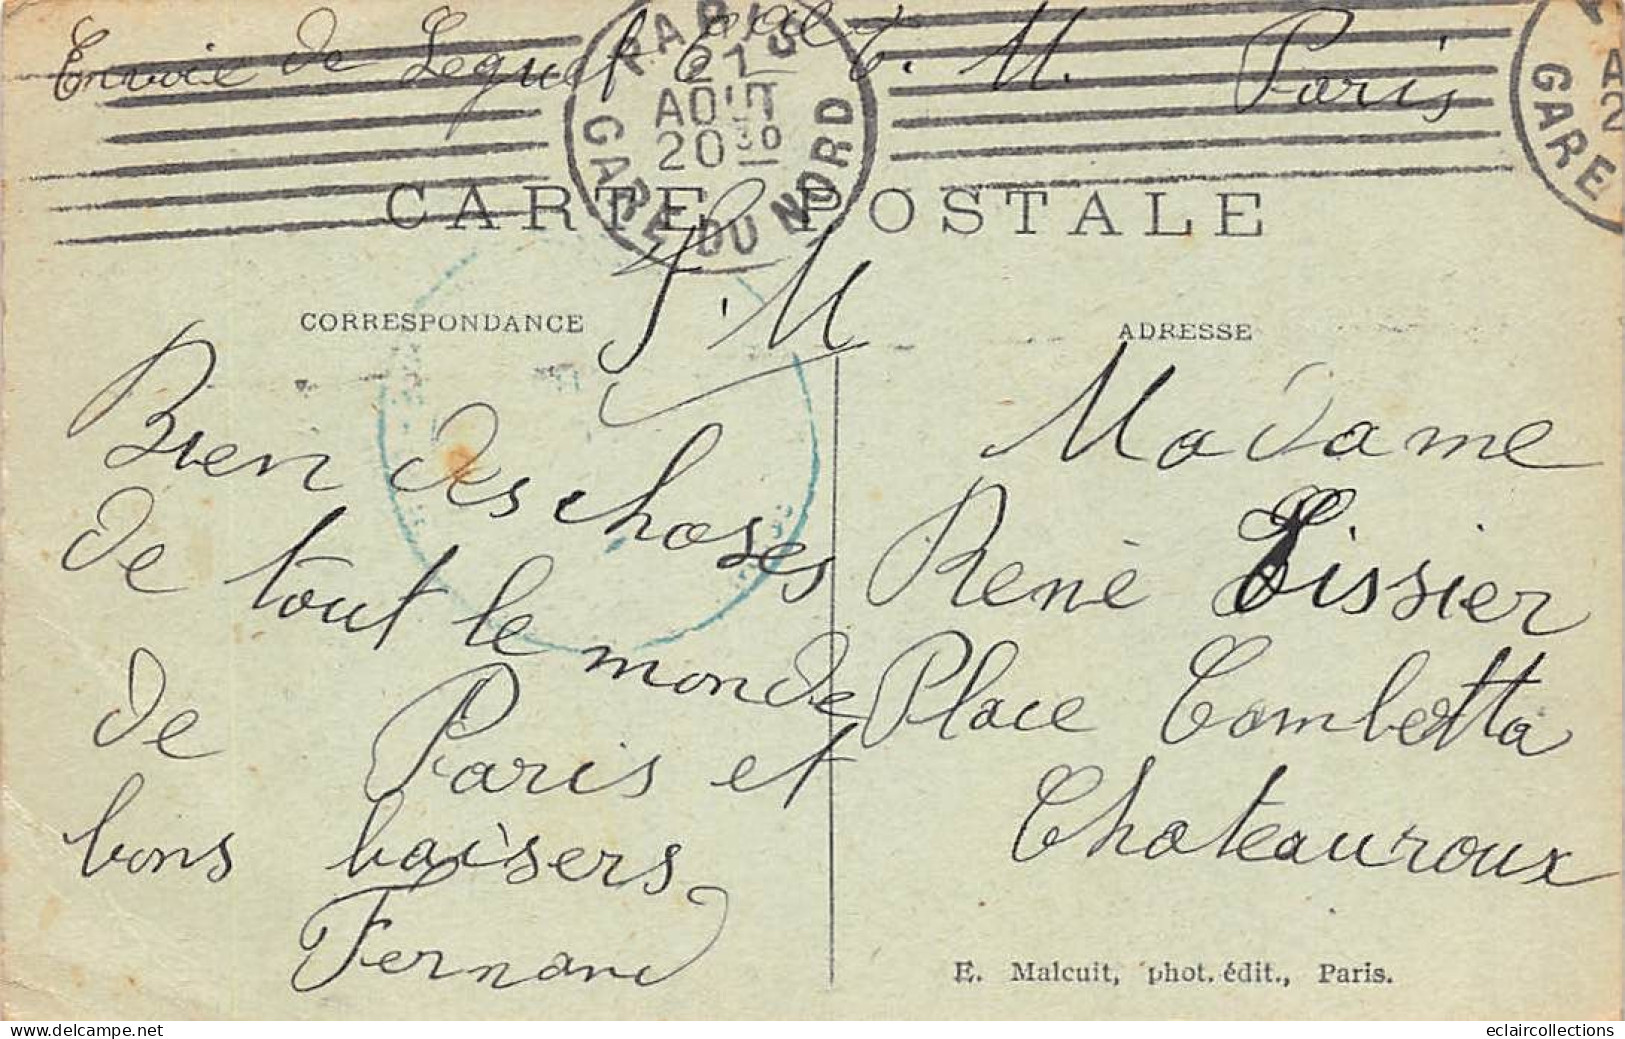 Envoie de Leguet C. M. Paris
PARIS
21
AOUT
20 30
GARE DU NORD
GARE
CARTE POSTALE
F. M
CORRESPONDANCE
Bien des choses
de tout le monde
de Paris et
bons baisers
Fernand
ADRESSE
Madame
René Tissier
Place Gambetta
Chateauroux
E. Malcuit, phot. édit., Paris.
eclaircollections